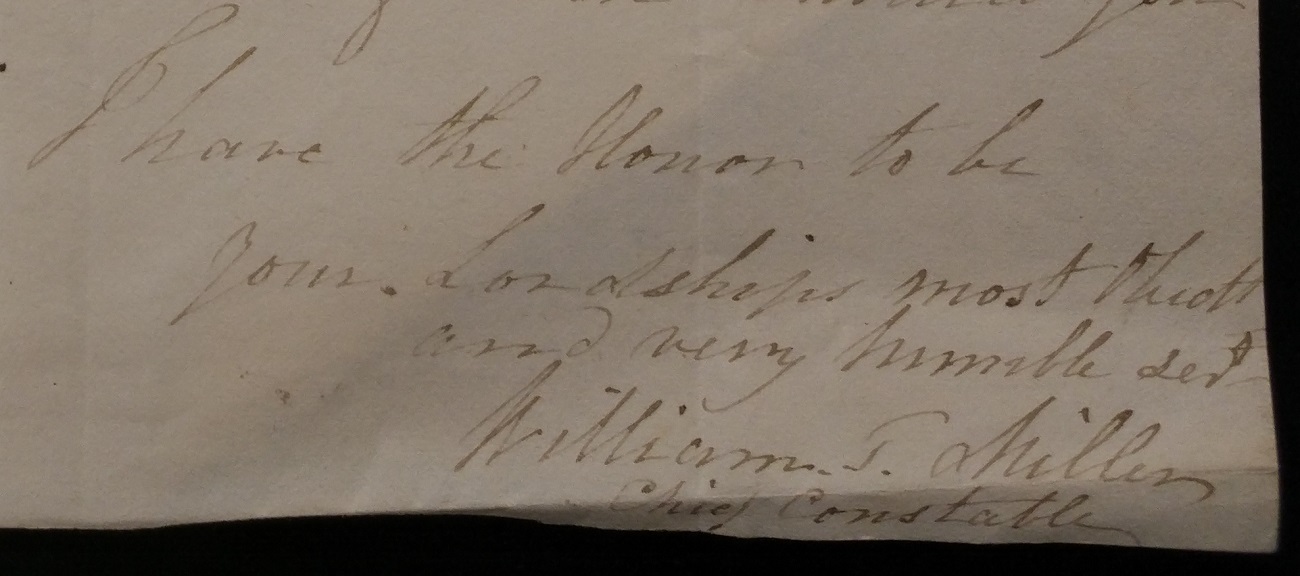 I have the Honor to be
your Lordships most Obedt
and very humble sert
William. T. Miller
Chief Constable